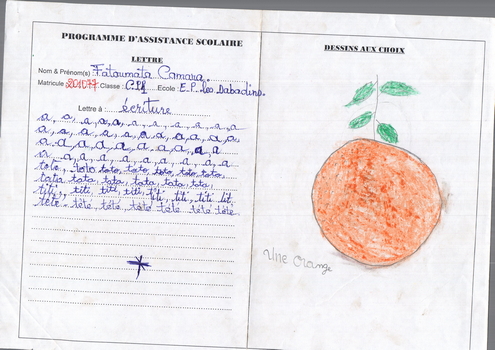 PROGRAMME D'ASSISTANCE SCOLAIRE
LETTRE
Nom & Prénom(s): Fatoumata Camara
Matricule 201077 Classe: CP1 Ecole: E.P. les Dabadins
Lettre à: écriture
a, a, a, a, a, a, a, a, a, a, a
a, a, a, a, a, a, a, a, a, a, a
a, a, a, a, a, a, a, a, a, a
a, a, a, a, a, a, a, a, a, a
toto, toto, toto, toto, toto, toto, toto,
tata, tata, tata, tata, tata, tata,
titi, titi, titi, titi, titi, titi, titi,
tété, tété, tété, tété, tété, tété
DESSINS AUX CHOIX
Une orange